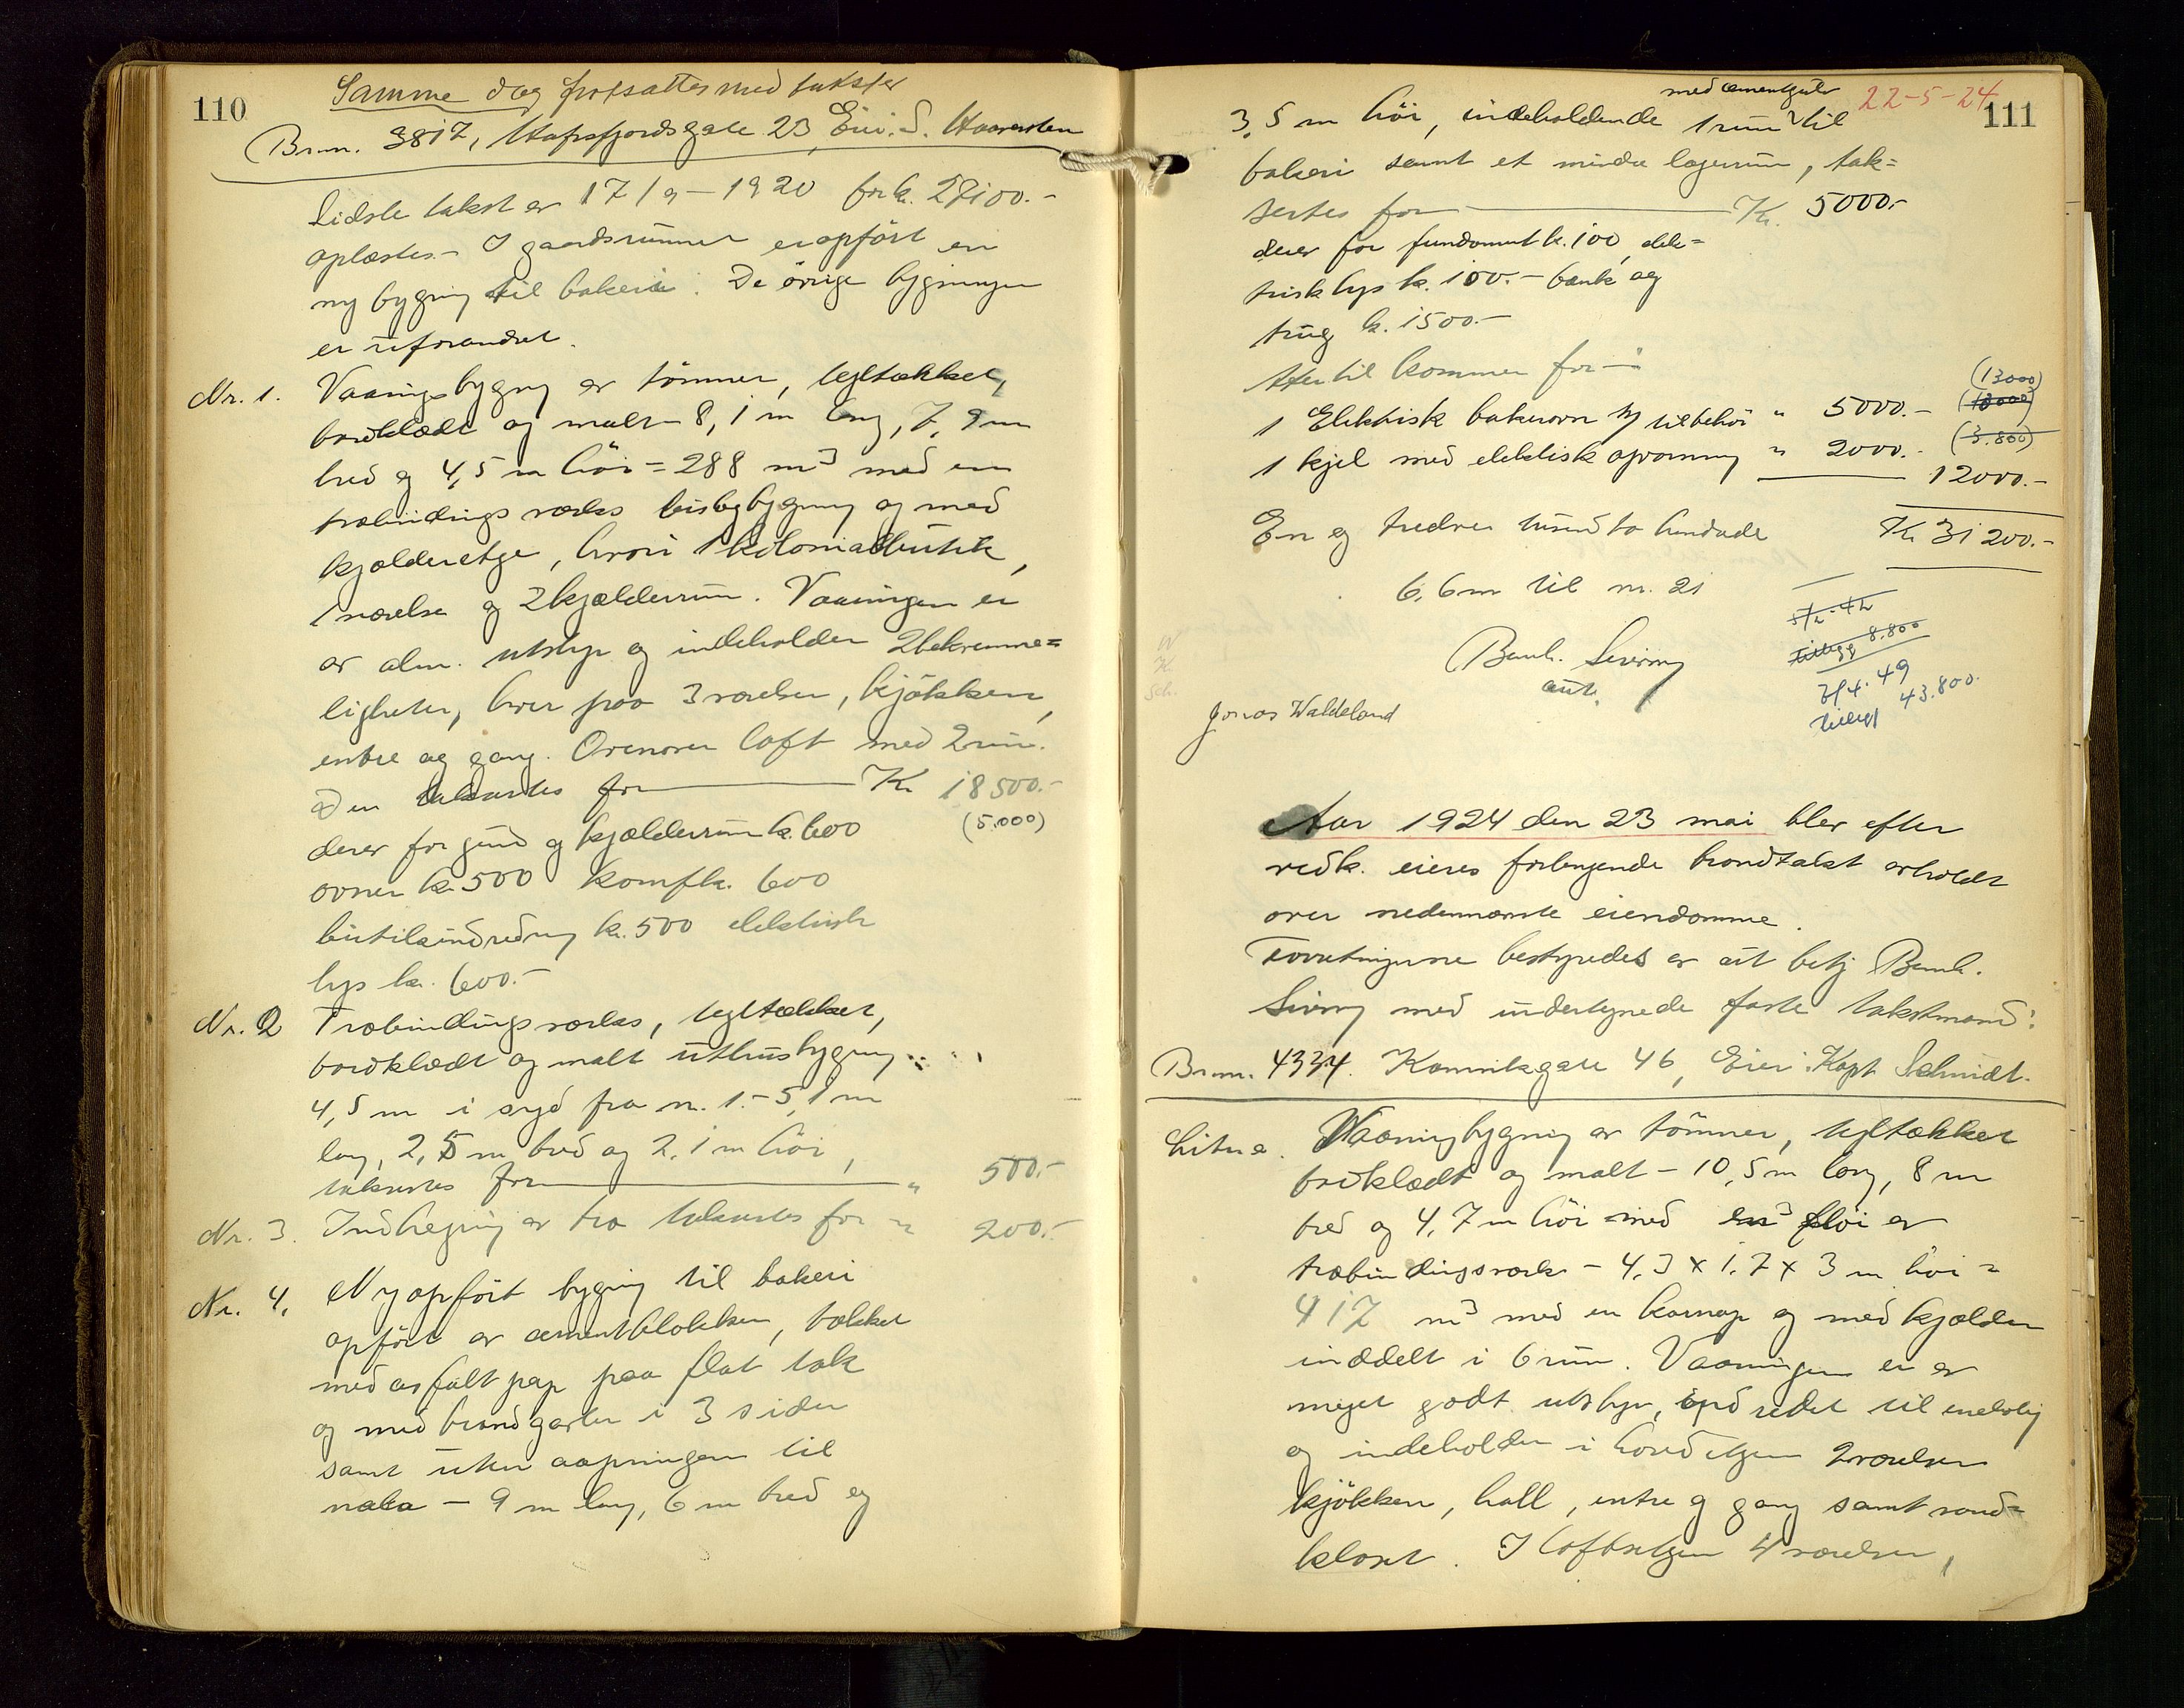 110
Samme dag fortsattes med takster
Brnr. 3817, Hafrsfjordsgate 23, Eier: S. Haavarsten
Sidste takst er 17/9 - 1920 for k. 28100.-
oplæstes. - I gaardsrummet er opført en
ny bygning til bakeri. De övrige bygninger
er uforandret.
Nr. 1. Vaaningsbygning av tömmer, tegltækket,
bordklædt og malt - 8,1 m lang, 7,9 m
bred og 4,5 m höi = 288 m3 med en
træbindingsverks bislagbygning og med
kjælderetge, hvori 1 kolonialbutik,
1 værelse og 2 kjælderrum. Vaaningen er
av alm. utstyr og indeholder 2 bekvemme=
ligheter, hver paa 3 værelser, kjökken,
entre og gang. Ovenover loft med 2 rum.
Den takseres for Kr 18500.-
derav for grund og kjælderrum k. 600 (5.000)
ovner kr. 500 komf kr. 600
butikindredning k. 500 elektrisk
lys kr. 600.-
Nr. 2 Træbindingsverks, tegltækket,
bordklædt og malt uthusbygning
4,5 m i syd fra nr. 1. - 5,1 m
lang, 2,5 m bred og 2,1 m höi,
takseres for " 500.-
Nr. 3. Indhegning av træ takseres for " 200.-
Nr. 4. Nyopfört bygning til bakeri
opfört av cementblokker, tækket
med asfaltpap paa flat tak
og med brandgavler i 3 sider
samt uten aapninger til
nabo - 9 m lang, 6 m bred og
22-5-24
111
med cementgulv
3,5 m höi, indeholdende 1 rum til
bakeri samt et mindre lagerrum, tak=
sertes for Kr. 5000.-
derav for fundament k. 100, elek=
trisk lys k. 100.- bænk og
trug k. 1500.-
Hertil kommer for:
(13000)
1 Elektrisk bakerovn m/ tilbehör " 5000.- (10000)
1 kjel med elektrisk opvarmning " 2000.- (3.800)
12000.-
En og tredve tusind to hundrede Kr 31200.-
6,6 m til nr. 21
5/2-42
Tillegg 8.800
Bernh. Sivering
aut.
2/4. 49
Tillegg 43.800.
Jonas Waldeland
Aar 1924 den 23 mai blev efter
vedk. eieres forlangende brandtakst avholdt
over nedennævnte eiendomme.
Forretningerne bestyredes av aut betj Bernh.
Sivering med undertegnede faste takstmænd:
Brnr. 4334. Kanniksgate 46, Eier: Kapt Schmidt.
Litr a. Vaaningsbygning av tömmer, tegltækket
bordklædt og malt - 10,5 m lang, 8 m
bred og 4,7 m höi med en flöi av
træbindingsverk - 4,3 x 1,7 x 3 m höi =
417 m3 med en karnap og med kjælder
inddelt i 6 rum. Vaaningen er av
meget godt utstyr, indredet til enebolig
og indeholder i hovedetgen 2 værelser
kjökken, hall, entre og gang samt vand=
kloset. I loftsetgen 4 værelser,